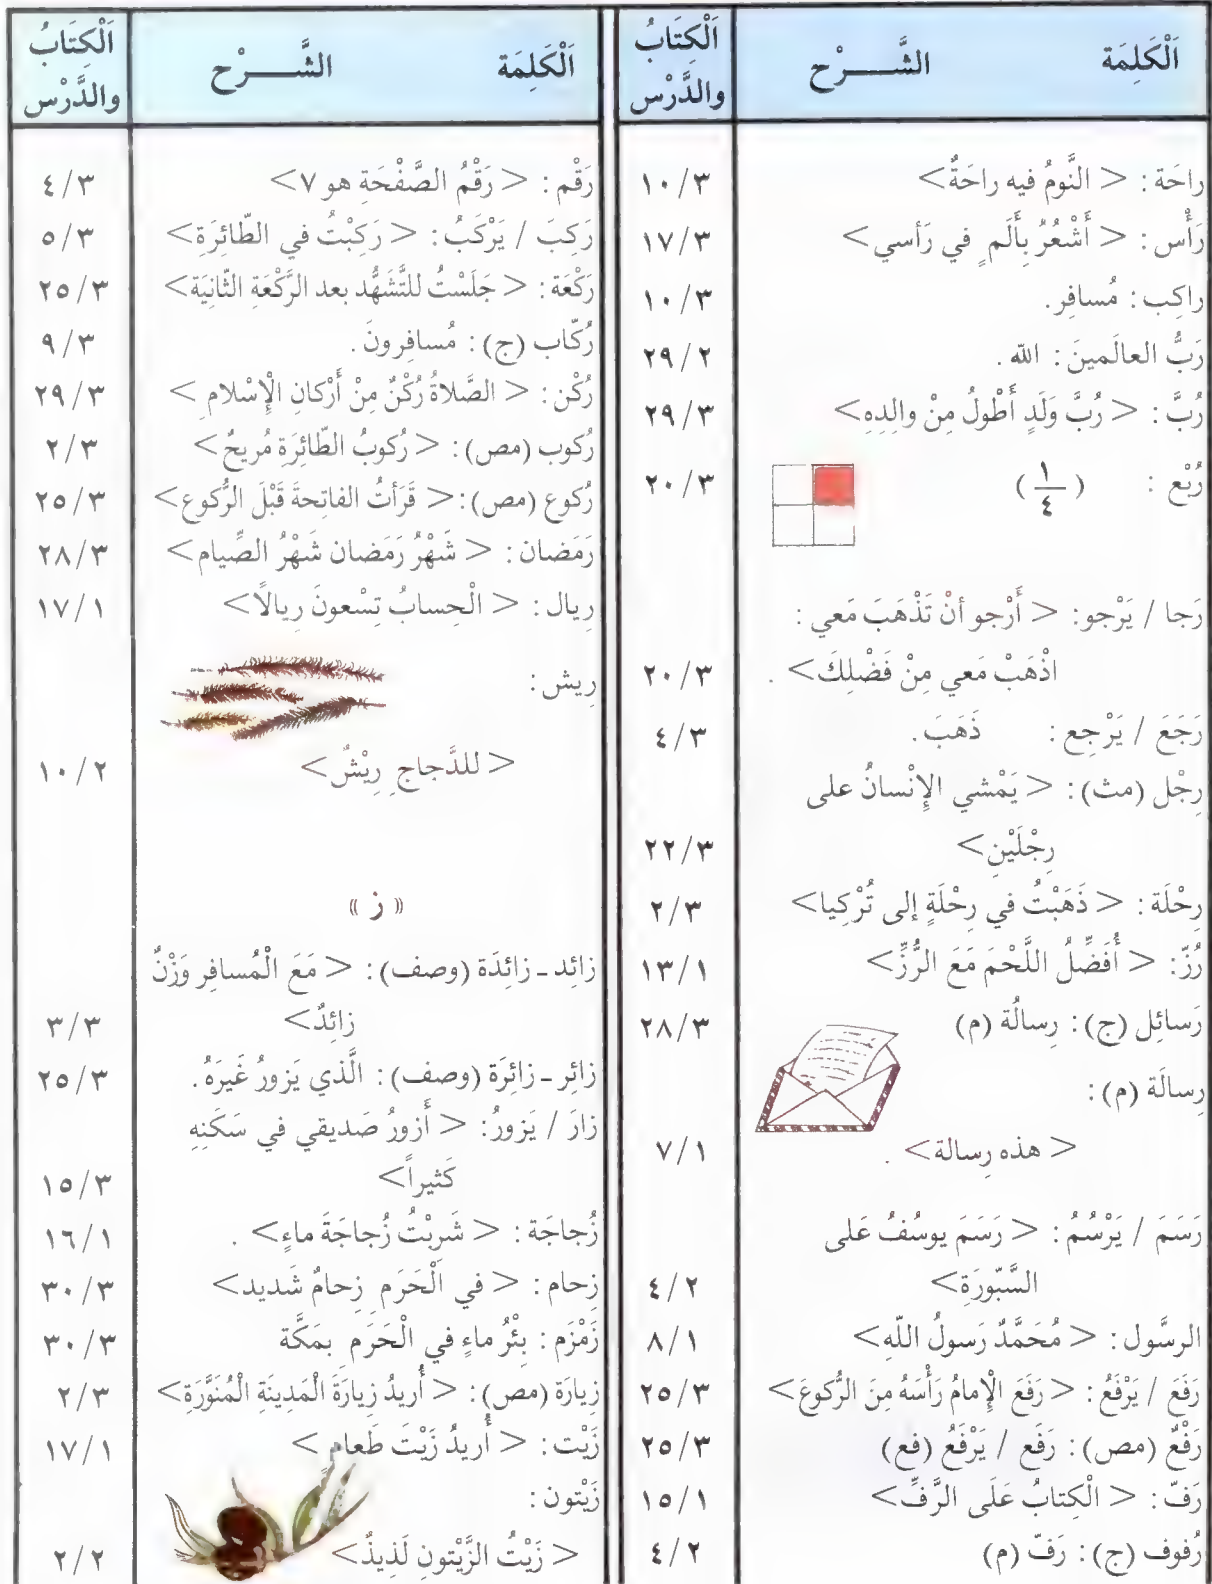 اَلْكَلِمَة الشَّـــرْح اَلْكِتَابُ والدَّرْس
راحَة : < النَّومُ فيه راحَةٌ> ١٠/٣
رَأْس : < أَشْعُرُ بِأَلَمٍ في رَأسي> ١٧/٣
راكِب : مُسافِر. ١٠/٣
رَبُّ العالَمينَ : الله . ٢٩/٢
رُبَّ : < رُبَّ وَلَدٍ أَطْولُ مِنْ والِدِهِ> ٢٩/٣
رُبْع : (١/٤) ٢٠/٣
رَجا / يَرْجو: < أَرْجو أنْ تَذْهَبَ مَعي :
اذْهَبْ مَعي مِنْ فَضْلِكَ> . ٢٠/٣
رَجَعَ / يَرْجِع : ذَهَبَ . ٤/٣
رِجْل (مث) : < يَمْشي الإِنْسانُ على
رِجْلَيْنِ> ٢٢/٣
رِحْلَة : < ذَهَبْتُ في رِحْلَةٍ إلى تُرْكِيا> ٢/٣
رُزّ : < أُفَضِّلُ اللَّحْمَ مَعَ الرُّزِّ> ١٣/١
رَسائِل (ج) : رِسالُة (م) ٢٨/٣
رِسالَة (م) :
< هذه رِسالة> . ٧/١
رَسَمَ / يَرْسُمُ : < رَسَمَ يوسُفُ عَلى
السَّبّورَةِ> ٤/٢
الرسَّول : < مُحَمَّدٌ رَسولُ اللّهِ> ٨/١
رَفَعَ / يَرْفَعُ : < رَفَعَ الإِمامُ رَأْسَهُ مِنَ الرُّكوعَ> ٢٥/٣
رَفْعٌ (مص) : رَفَع / يَرْفَعُ (فع) ٢٥/٣
رَفّ : < الْكِتابُ عَلَى الرَّفِّ> ١٥/١
رُفوف (ج) : رَفّ (م) ٤/٢
اَلْكَلِمَة الشَّـــرْح اَلْكِتَابُ والدَّرْس
رَقْم : < رَقْمُ الصَّفْحَةِ هو ٧> ٤/٣
رَكِبَ / يَرْكَبُ : < رَكِبْتُ في الطّائِرَةِ> ٥/٣
رَكْعَة : < جَلَسْتُ للتَّشَهُّد بعد الرَّكْعَةِ الثّانِيَة> ٢٥/٣
رُكّاب (ج) : مُسافِرونَ . ٩/٣
رُكْن : < الصَّلاةُ رُكْنٌ مِنْ أَرْكانِ الْإِسْلامِ > ٢٩/٣
رُكوب (مص) : < رُكوبُ الطّائِرَةِ مُريحٌ > ٢/٣
رُكوع (مص) : < قَرَأتُ الفاتِحةَ قَبْلَ الرُّكوع> ٢٥/٣
رَمَضان : < شَهْرُ رَمَضان شَهْرُ الصِّيام> ٢٨/٣
رِيال : < الْحِسابُ تِسْعونَ رِيالًا> ١٧/١
رِيش :
< للدَّجاجِ رِيْشٌ> ١٠/٢
« ز »
زائِد - زائِدَة (وصف) : < مَعَ الْمُسافِر وَزْنٌ
زائِدٌ> ٣/٣
زائِر - زائِرَة (وصف) : الَّذي يَزورُ غَيرَهُ . ٢٥/٣
زارَ / يَزورُ : < أَزورُ صَديقي في سَكَنِهِ
كَثيراً> ١٥/٣
زُجاجَة : < شَرِبْتُ زُجاجَةَ ماءٍ> . ١٦/١
زِحام : < في الْحَرَمِ زِحامٌ شَديد> ٣٠/٣
زَمْزَم : بِئْرُ ماءٍ في الْحَرَمِ بمَكَّة ٣٠/٣
زِيارَة (مص) : < أُريدُ زِيارَةَ الْمَدِينَةِ الْمُنَوَّرَةِ> ٢/٣
زَيْت : < أُريدُ زَيْتَ طَعامٍ > ١٧/١
زَيْتون :
< زَيْتُ الزَّيْتونِ لَذِيذٌ> ٢/٢